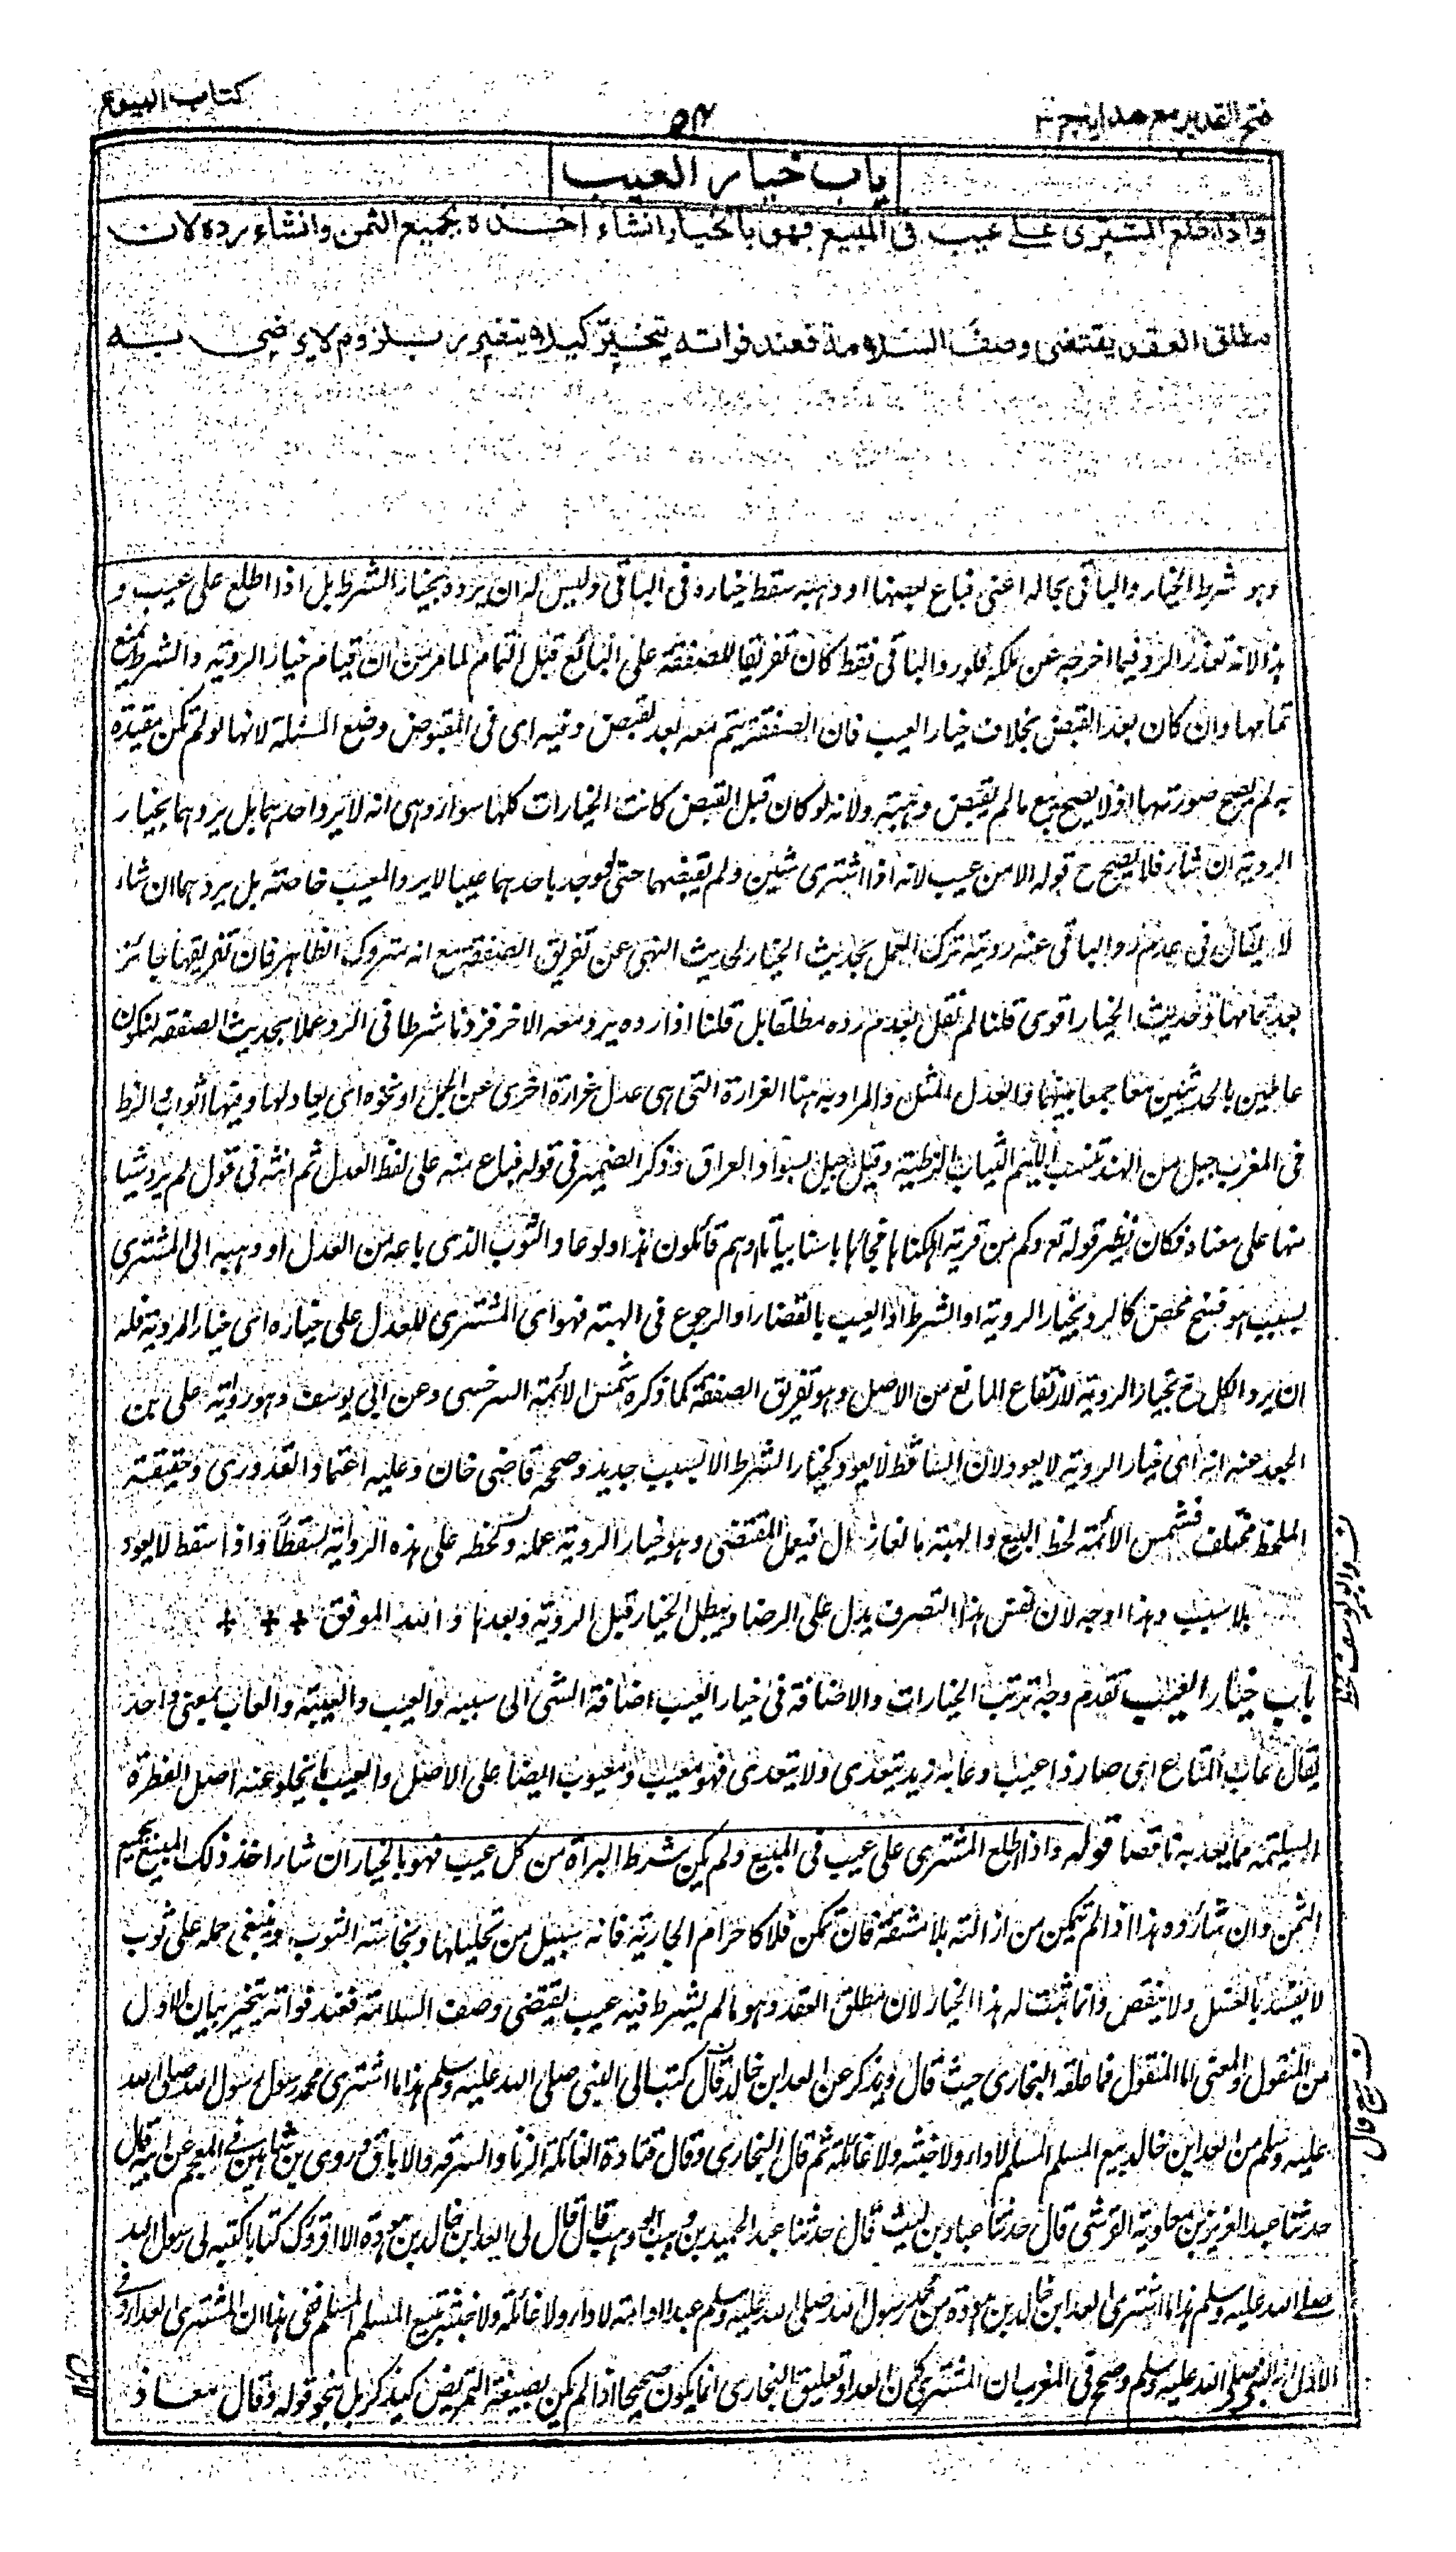 فتح القدير مع هداية ج ٣
كتاب البيوع
باب خيار العيب
واذا طلع المشترى على عيب فى المبيع فهو بالخيار انشاء اخذه بجميع الثمن وانشاء رده لان
مطلق العقد يقتضى وصف السلامة فعند فواته يتخير كيلا يتضرر بلزوم لا يرضى به
وهو شرط الخيار والباقى بحاله اعنى فباع بعضها او وهبه سقط خياره فى الباقى وليس له ان يرده بخيار الشرط بل اذا اطلع على عيب و
هذا لانه تعذر الرد فيما اخرجه عن ملكه فلو رد الباقى فقط كان تفريقا للصفقة على البائع قبل التمام لما مر من ان قيام خيار الروية والشرط يمنع
تمامها وان كان بعد القبض بخلاف خيار العيب فان الصفقة يتم معه بعد لقبض وفيه اى فى المقبوض وضع المسئلة لانها لو لم تكن مقيدة
به لم يصح صورتها اذ لا يصح بيع ما لم يقبض وهبته ولانه لو كان قبل القبض كانت الخيارات كلها سواء وهى انه لا يرد احدهما بل يردهما بخيار
الروية ان شاء فلا يصح ح قوله الا من عيب لانه اذا اشترى شئين ولم يقبضهما حتى لو وجد باحدهما عيبا لا يرد المعيب خاصة بل يردهما ان شاء
لا يقال فى عدم رد الباقى عنه روية ترك العمل بحديث الخيار لحديث النهى عن تفريق الصفقة مع انه متروك الظاهر فان تفريقها جائز
بعد تمامها وحديث الخيار اقوى قلنا لم نقل بعدم رده مطلقا بل قلنا اذا رده يرد معه الاخر فزدنا شرطا فى الرد عملا بحديث الصفقه لنكون
عاملين بالحديثين معا جمعا بينهما والعدل المثل والمراد به هنا الغرارة التى هى عدل غرارة اخرى عن الجمل او نحوه اى يعادلها وفيها اثواب الزط
فى المغرب جيل من الهند تنسب اليهم الثياب الزطية وقيل جيل بسواد العراق وذكر الضمير فى قوله فباع منه على لفظ العدل ثم انثه فى قول لم يرد شيئا
منها على معناه فكان نظير قوله تع وكم من قرية اهلكناها فجاءها باسنا بياتا او هم قائلون هذا ولو عاد الثوب الذى باعه من العدل او وهبه الى المشترى
بسبب هو فسخ محض كالرد بخيار الروية او الشرط او العيب بالقضاء او الرجوع فى الهبة فهو اى المشترى للعدل على خياره اى خيار الروية فله
ان يرد الكل ح بخيار الروية لارتفاع المانع من الاصل وهو تفريق الصفقة كما ذكره شمس الائمة السرخسى وعن ابى يوسف وهو رواية على بن
الجعد عنه انه اى خيار الروية لا يعود لان الساقط لا يعود كخيار الشرط الا بسبب جديد وصححه قاضى خان وعليه اعتماد القدورى وحقيقة
الملحظ مختلف فشمس الائمة لحظ البيع والهبة مانعا زال فيعمل المقتضى وهو خيار الروية عمله ولحظه على هذه الرواية مسقطا واذا سقط لا يعود
بلا سبب وهذا اوجه لان نفس هذا التصرف يدل على الرضا ويبطل الخيار قبل الروية وبعدها والله الموفق
باب خيار العيب تقدم وجه ترتب الخيارات والاضافة فى خيار العيب اضافة الشى الى سببه والعيب والعيبة والعاب بمعنى واحد
يقال عاب المتاع اى صار ذا عيب وعابه زيد يتعدى ولا يتعدى فهو معيب ومعيوب ايضا على الاصل والعيب ما يخلو عنه اصل الفطرة
السليمة مما يعد به ناقصا قوله واذا اطلع المشترى على عيب فى المبيع ولم يكن شرط البراة من كل عيب فهو بالخيار ان شاء اخذ ذلك المبيع بجميع
الثمن وان شاء رده هذا اذا لم يتمكن من ازالته بلا مشقة فان تمكن فلا كاحرام الجارية فانه بسبيل من تحليلها ونجاسة الثوب وينبغى حمله على ثوب
لا يفسد بالغسل ولا ينقص وانما ثبت له هذا الخيار لان مطلق العقد وهو ما لم يشرط فيه عيب يقتضى وصف السلامة فعند فواته يتخير بيان الاول
من المنقول والمعنى اما المنقول فما علقه البخارى حيث قال ويذكر عن العداء بن خالد قال كتب لى النبى صلى الله عليه وسلم هذا ما اشترى محمد رسول الله صلى الله
عليه وسلم من العداء بن خالد بيع المسلم المسلم لا داء ولا خبثه ولا غائلة ثم قال البخارى وقال قتادة الغائلة الزنا والسرقه والاباق وروى بن شاهين فى المعجم عن ابيه قال
حدثنا عبد العزيز بن معاوية القرشى قال حدثنا عباد بن ليث قال حدثنا عبد المجيد بن وهب قال قال لى العداء بن خالد بن هوذه الا اقرئك كتابا كتبه لى رسول الله
صلى الله عليه وسلم هذا ما اشترى العداء بن خالد بن هوذه من محمد رسول الله صلى الله عليه وسلم عبدا او امة لا داء ولا غائلة ولا خبثة بيع المسلم المسلم ففى هذا ان المشترى العداء وفى
الاول انه النبى صلى الله عليه وسلم وصحح فى المغرب ان المشترى كان العداء وتعليق البخارى انما يكون صحيحا اذا لم يكن بصيغة التمريض كيذكر بل بنحو قوله وقال معاذ